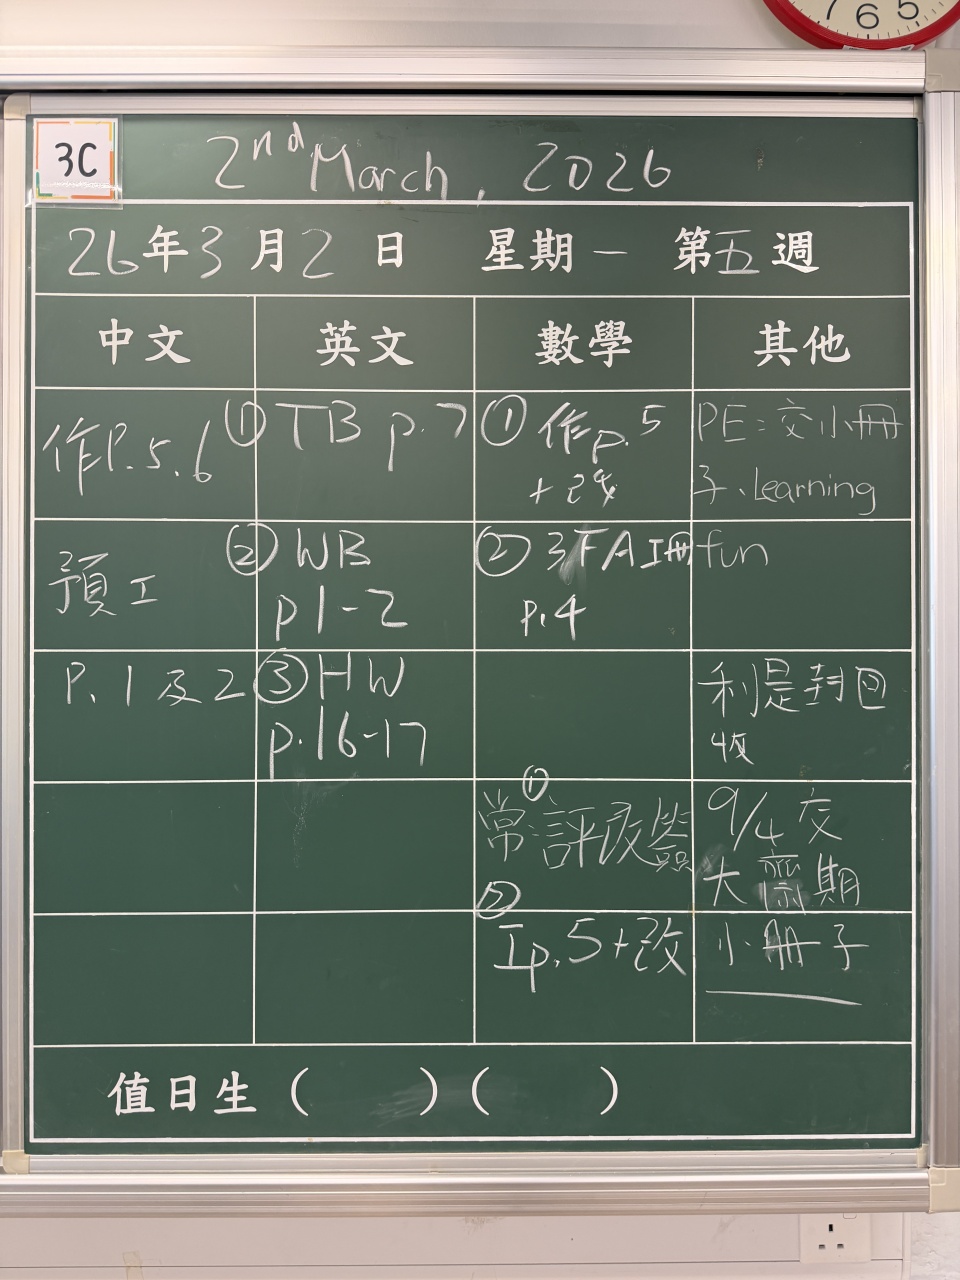 7 6 5
3C
2nd March, 2026
26年3月2日 星期一 第五週
中文 英文 數學 其他
作P.5.6
預工
P.1及2
① TB p.7
② WB
p1-2
③ HW
p.16-17
① 作p.5
+改
② 3FA工冊
p.4
① 常:評改簽
② 工p.5+改
PE:交小冊
子、Learning
fun
利是封回
收
9/4 交
大齋期
小冊子
值日生 ( ) ( )